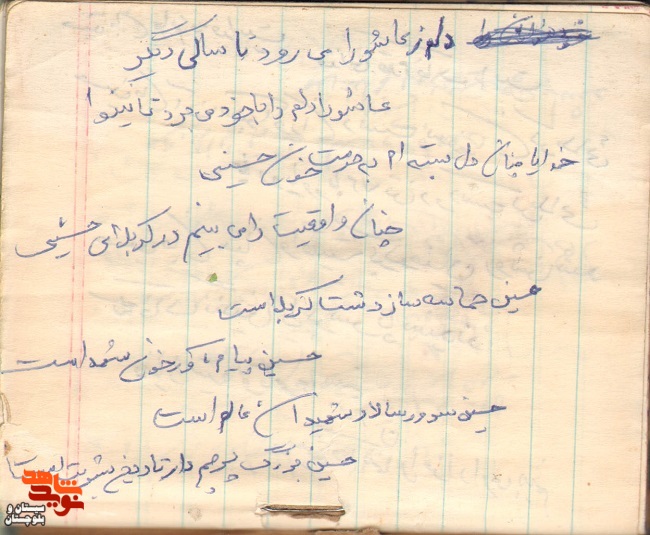 دلم ز عاشورا می رود تا سالی دیگر
عاشورا دلم را با خود می برد تا نینوا
خدایا چنان دل بسته ام به حرمت خون حسینی
چنان واقعیت را می بینم در کربلای حسینی
حسین حماسه ساز دشت کربلا است
حسین پیام خون شهداست
حسین سرور سالار شهیدان عالم است
حسین بزرگ پرچم دار تاریخ بشریت است
شاهد
نوید
سیستان و
بلوچستان